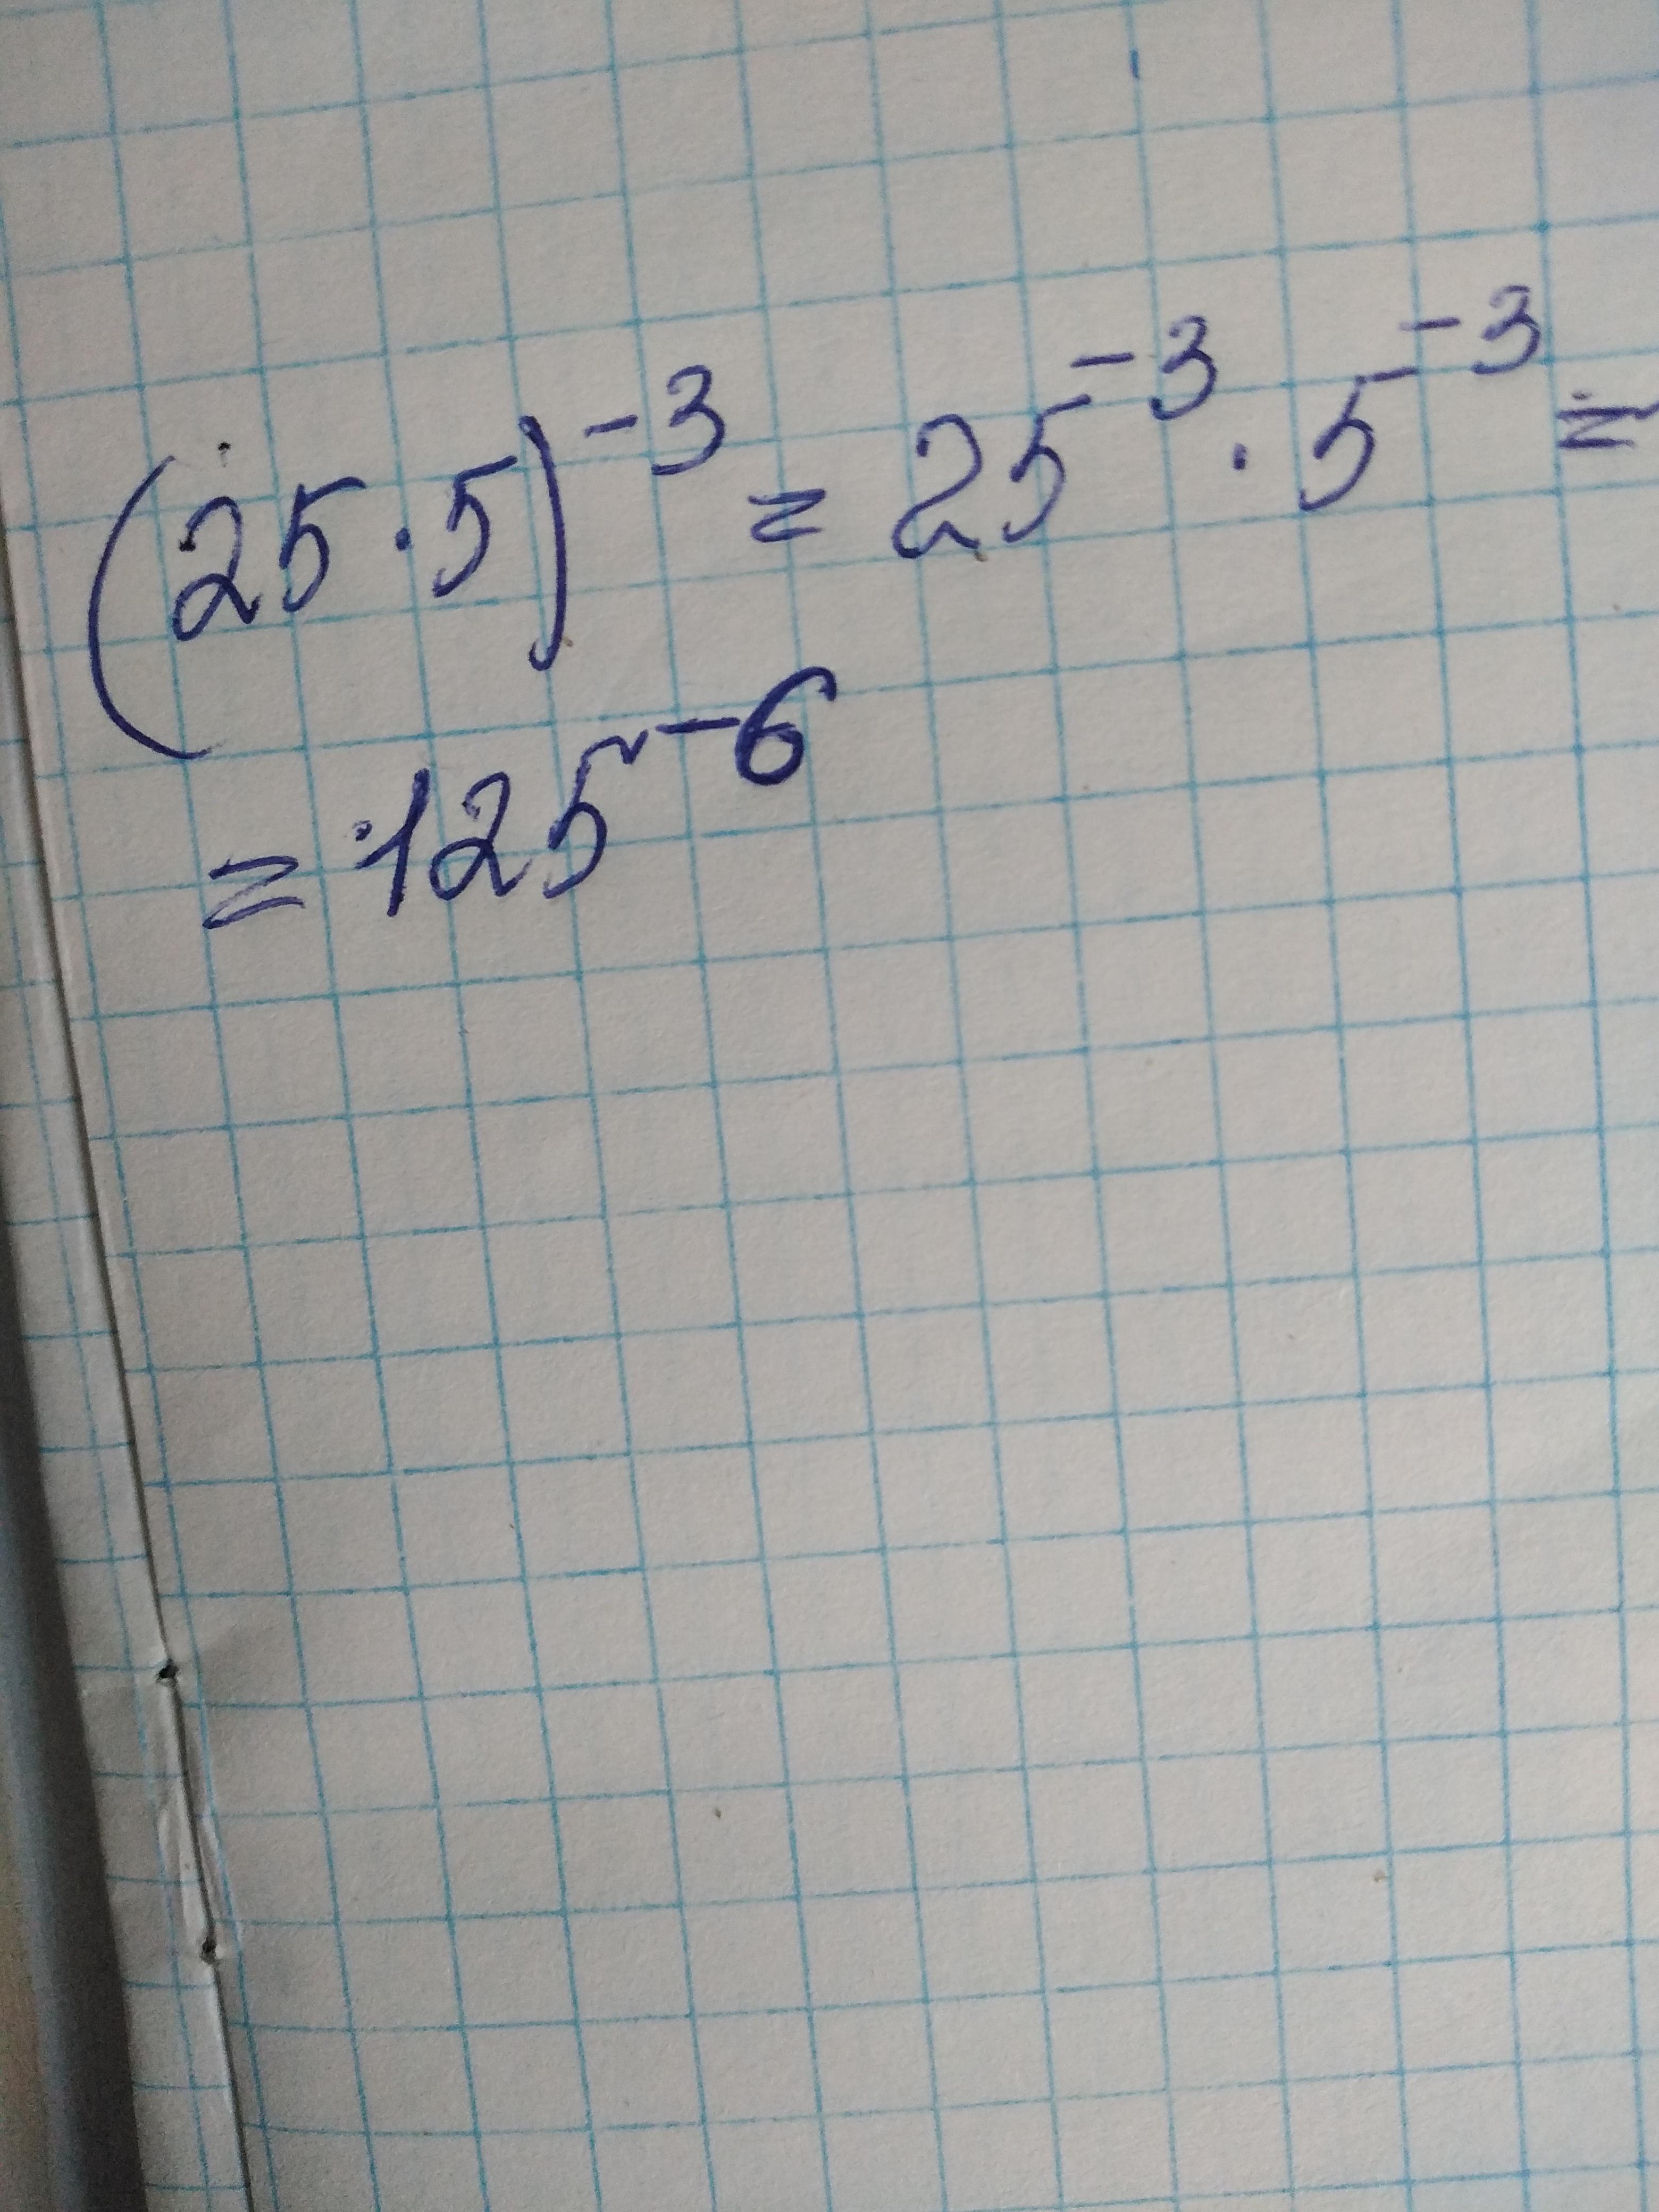 (25·5)⁻³ = 25⁻³ · 5⁻³ =
= 125⁻⁶